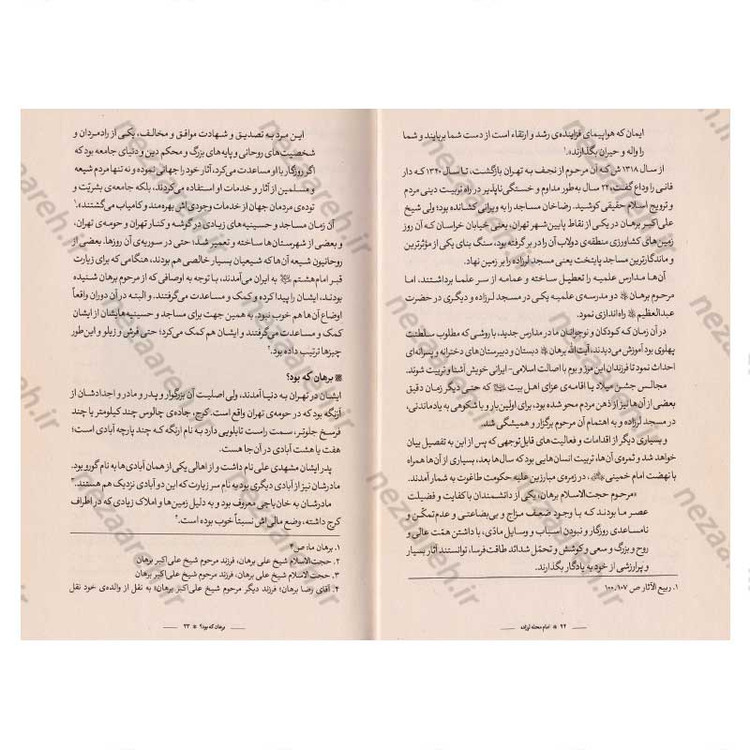 ایمان که هواپیمای فزاینده‌ی رشد و ارتقاء است از دست شما بربایند و شما
را واله و حیران بگذارند».۱
از سال ۱۳۱۸ ش که آن مرحوم از نجف به تهران بازگشت، تا سال ۱۳۴۰ که دار
فانی را وداع گفت، ۲۲ سال به‌طور مداوم و خستگی‌ناپذیر در راه تربیت دینی مردم
و ترویج اسلام حقیقی کوشید. رضاخان مساجد را به ویرانی کشانده بود؛ ولی شیخ
علی‌اکبر برهان در یکی از نقاط پایین‌شهر تهران، یعنی خیابان خراسان که آن روز
زمین‌های کشاورزی منطقه‌ی دولاب آن را در بر گرفته بود، سنگ بنای یکی از مؤثرترین
و ماندگارترین مساجد پایتخت یعنی مسجد لرزاده را بر زمین نهاد.
آن‌ها مدارس علمیه را تعطیل ساخته و عمامه از سر علما برداشتند، اما
مرحوم برهان دو مدرسه‌ی علمیه یکی در مسجد لرزاده و دیگری در حضرت
عبدالعظیم راه‌اندازی نمود.
در آن زمان که کودکان و نوجوانان ما در مدارس جدید، با روشی که مطلوب سلطنت
پهلوی بود آموزش می‌دیدند، آیت‌الله برهان دبستان و دبیرستان های دخترانه و پسرانه‌ای
احداث نمود تا فرزندان این مرز و بوم با اصالت اسلامی- ایرانی خویش آشنا و تربیت شوند.
مجالس جشن میلاد یا اقامه‌ی عزای اهل بیت که حتی دیگر زمان دقیق
بعضی از آن‌ها نیز از ذهن مردم محو شده بود، برای اولین‌بار و با شکوهی به یادماندنی،
در مسجد لرزاده و به اهتمام آن مرحوم برگزار و همیشگی شد.
و بسیاری دیگر از اقدامات و فعالیت‌های قابل‌توجهی که پس از این به تفصیل بیان
خواهد شد و ثمره‌ی آن‌ها، تربیت انسان‌هایی بود که سال‌ها بعد، بسیاری از آن‌ها همراه
با نهضت امام خمینی، در زمره‌ی مبارزین علیه حکومت طاغوت به شمار آمدند.
«مرحوم حجت‌الاسلام برهان، یکی از دانشمندان با کفایت و فضیلت
عصر ما بودند که با وجود ضعف مزاج و بی‌بضاعتی و عدم تمکّن و
نامساعدی روزگار و نبودن اسباب و وسایل مادّی، با داشتن همّت عالی و
روح و بزرگ و سعی و کوشش و تحمّل شدائد طاقت‌فرسا، توانستند آثار بسیار
و پرارزشی از خود به یادگار بگذارند.
۱. ربیع الآثار ص ۱۰۰،۱۰۷
۲۲ * امام محله لرزاده
این مرد به تصدیق و شهادت موافق و مخالف، یکی از رادمردان و
شخصیت‌های روحانی و پایه‌های بزرگ و محکم دین و دنیای جامعه بود که
اگر روزگار با او مساعدت می‌کرد، آثار خود را جهانی نموده و نه تنها مردم شیعه
و مسلمین از آثار و خدمات او استفاده می‌کردند، بلکه جامعه‌ی بشریّت و
توده‌ی مردمان جهان از خدمات وجودی اش بهره‌مند و کامیاب می‌گشتند».۱
آن زمان مساجد و حسینیه های زیادی در گوشه و کنار تهران و حومه‌ی تهران،
و بعضی از شهرستان‌ها ساخته و تعمیر شد؛ حتی در سوریه‌ی آن روزها. بعضی از
روحانیون شیعه آن‌ها که شیعیان بسیار خالصی هم بودند، هنگامی که برای زیارت
قبر امام هشتم به ایران می‌آمدند، با توجه به اوصافی که از مرحوم برهان شنیده
بودند، ایشان را پیدا کرده و کمک و مساعدت می‌گرفتند. و البته در آن دوران واقعاً
اوضاع آن‌ها هم خوب نبود. به همین جهت برای مساجد و حسینیه‌هایشان از ایشان
کمک و مساعدت می‌گرفتند و ایشان هم کمک می‌کرد؛ حتی فرش و زیلو و این‌طور
چیزها ترتیب داده بود.۲
برهان که بود؟
ایشان در تهران به دنیا آمدند، ولی اصلیت آن بزرگوار و پدر و مادر و اجدادشان از
اَرَنگه بود که در حومه‌ی تهران واقع است. کرج، جاده‌ی چالوس چند کیلومتر یا چند
فرسخ جلوتر، سمت راست تابلویی دارد به نام ارنگه که چند پارچه آبادی است؛
هفت یا هشت آبادی در آن‌جا هست.
پدر ایشان مشهدی علی نام داشت و از اهالی یکی از همان آبادی‌ها به نام گورو بود.
مادرشان نیز از آبادی دیگری بود به نام سر زیارت که این دو آبادی نزدیک هم هستند.۳
مادرشان به خان‌باجی معروف بود و به دلیل زمین‌ها و املاک زیادی که در اطراف
کرج داشته، وضع مالی اش نسبتاً خوب بوده است.۴
۱. برهان ما، ص
۲. حجت‌الاسلام شیخ علی برهان، فرزند مرحوم شیخ علی‌اکبر برهان
۳. حجت‌الاسلام شیخ علی برهان، فرزند مرحوم شیخ علی‌اکبر برهان
۴. آقای رضا برهان؛ فرزند دیگر مرحوم شیخ علی‌اکبر برهان؛ به نقل از والده‌ی خود نقل
برهان که بود؟ * ۲۳
nezaareh.ir